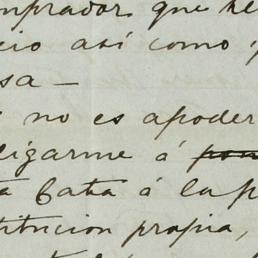 mprador que he
cio así como
sa —
no es apoder
ligarme á
a Cata á la p
titucion propia,